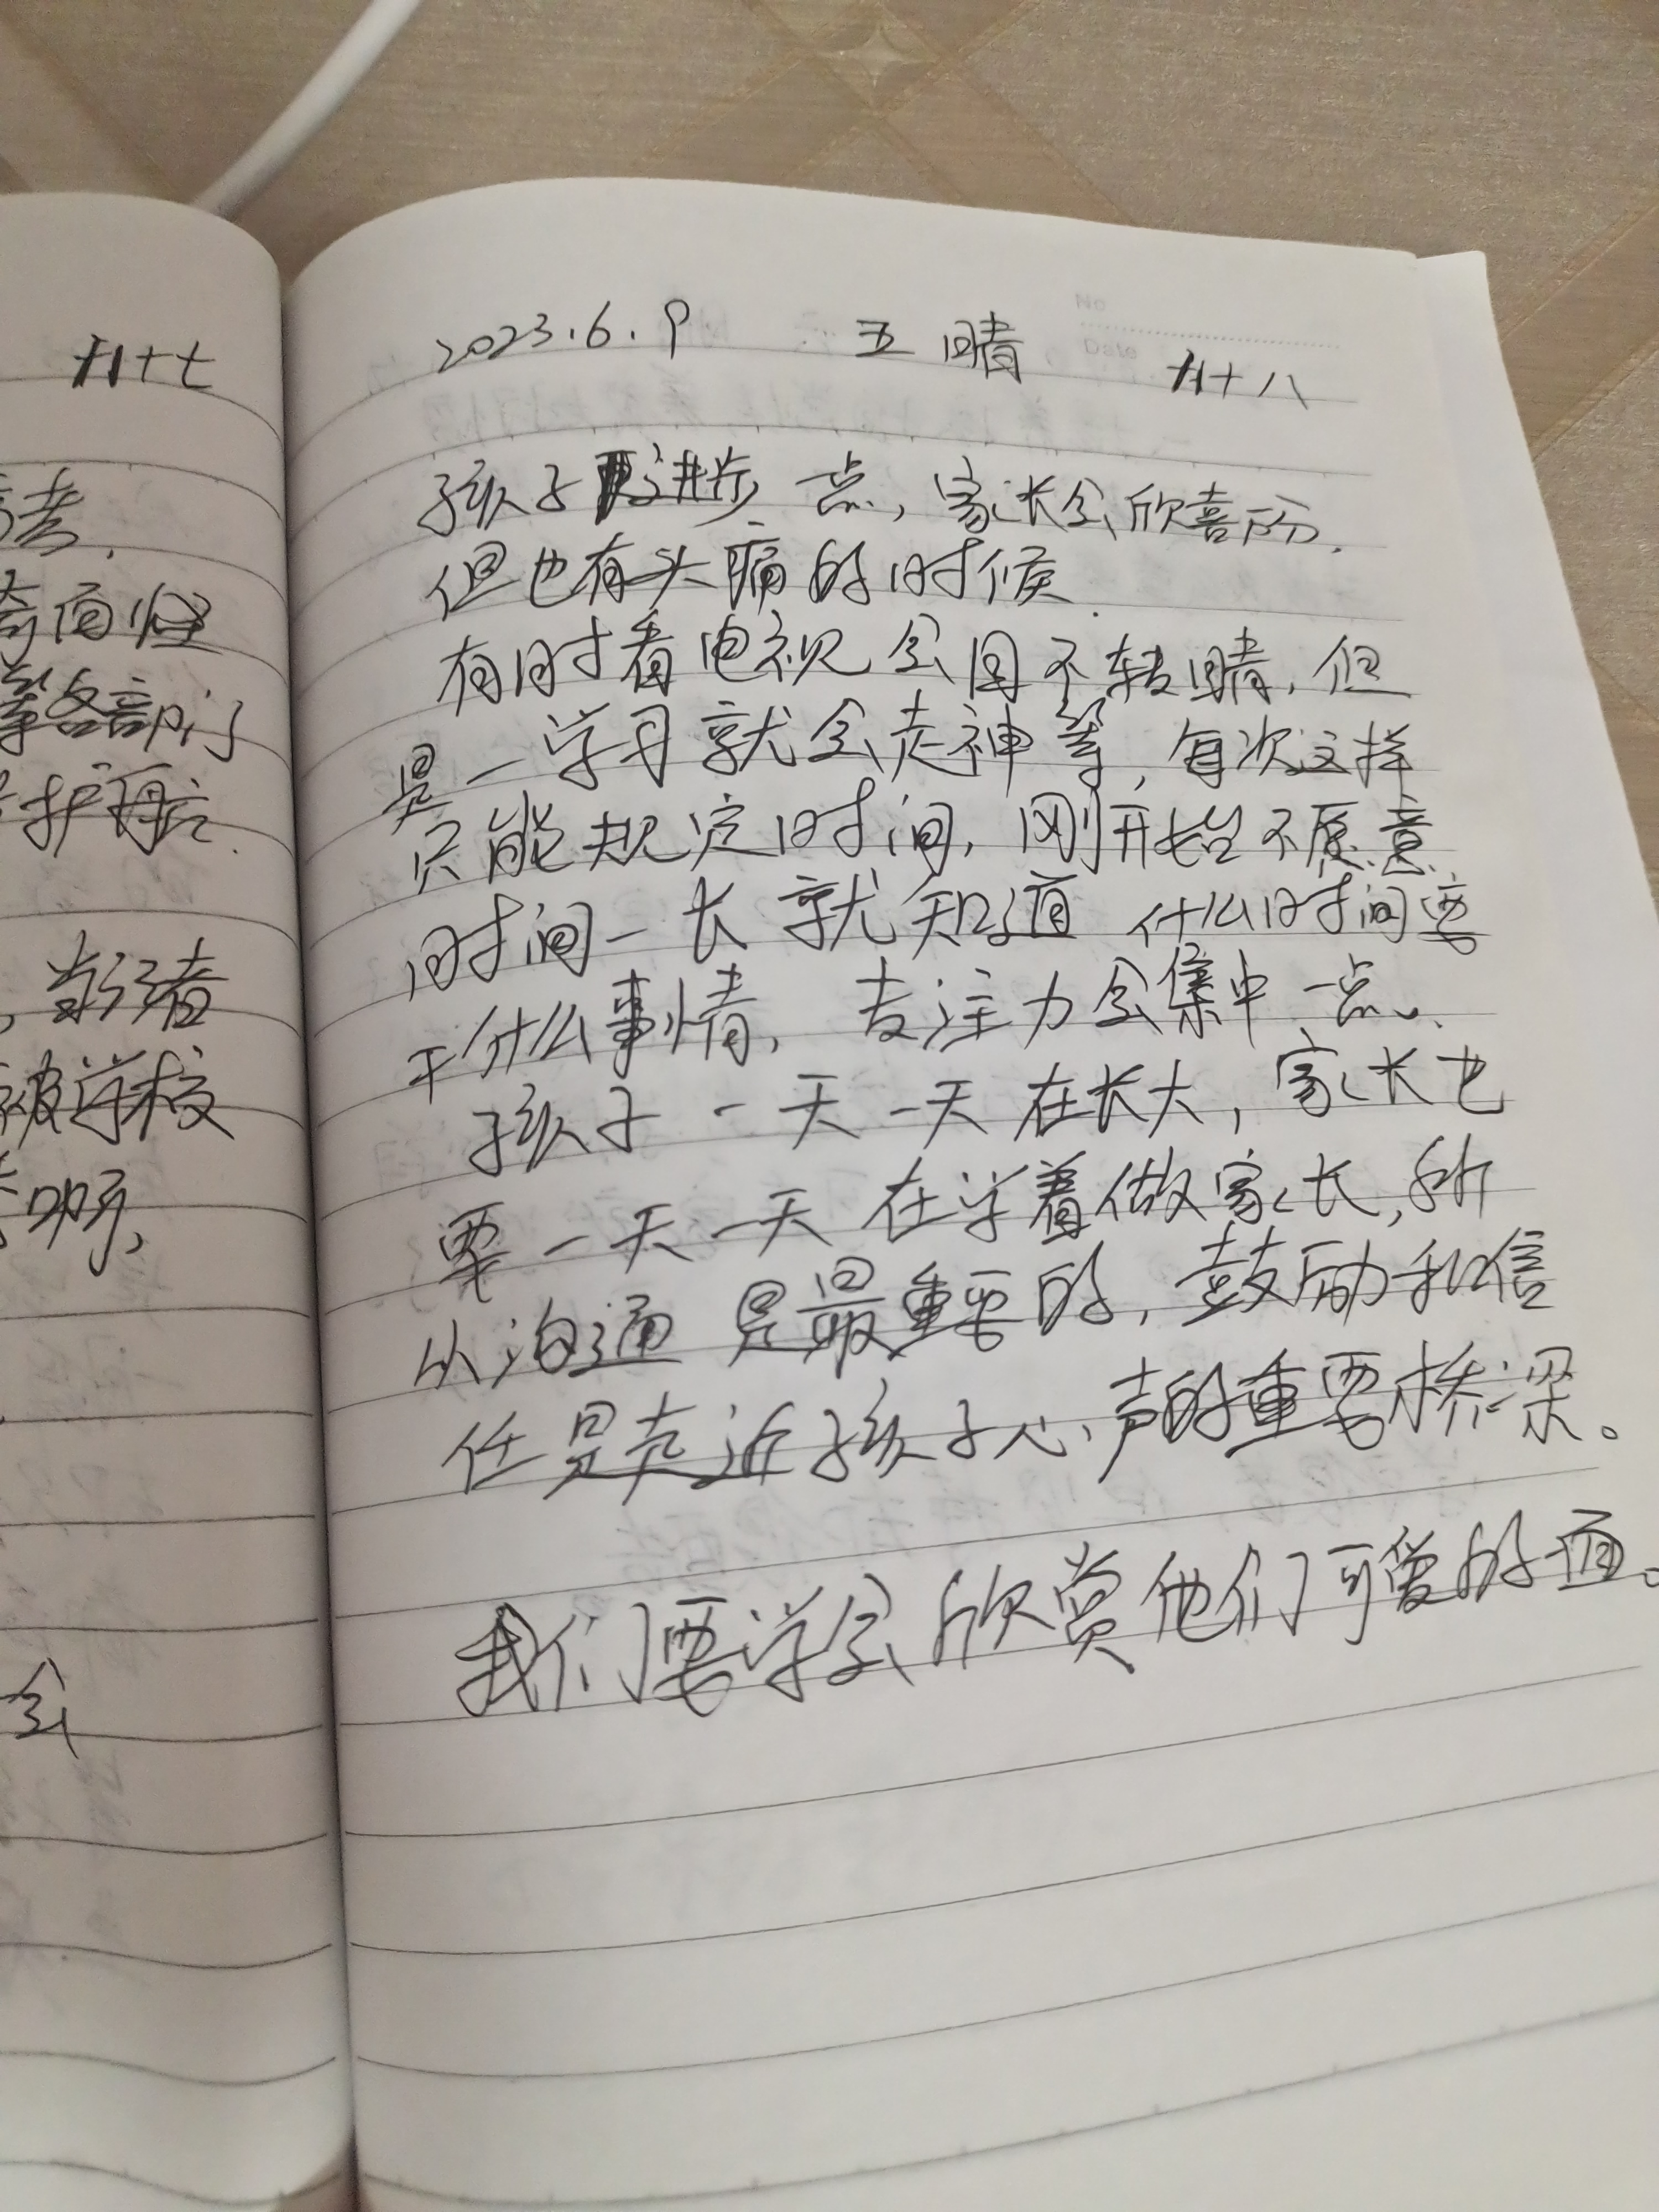 廿七
考,
奇面怪
等各部门
护航.
, 或行者
被学校
响,
会
2023.6.9 五 晴 廿八
No
Date
孩子进步一点, 家长会欣喜万分.
但也有头痛的时候.
有时看电视会目不转睛, 但
是一学习就会走神等, 每次这样
只能规定时间, 刚开始不愿意
时间一长就知道 什么时间要
干什么事情, 专注力会集中一点.
孩子一天一天在长大, 家长也
要一天一天在学着做家长, 所
以沟通是最重要的, 鼓励和信
任是走近孩子心声的重要桥梁。
我们要学会欣赏他们可爱的一面。